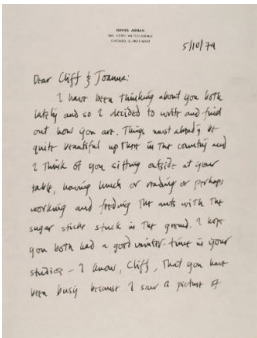 5/10/79
Dear Cliff & Joanna:
I have been thinking about you both
lately and so I decided to write and find
out how you are. Things must already be
quite beautiful up there in the country and
I think of you sitting outside at your
table, having lunch or reading or perhaps
working and feeding the ants with the
sugar sticks stuck in the ground. I hope
you both had a good winter-time in your
studios – I know, Cliff, that you have
been busy because I saw a picture of